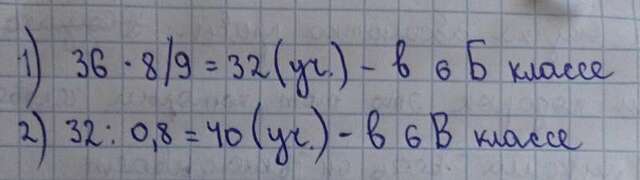 1) 36 · 8/9 = 32 (уч.) – в 6 Б классе
2) 32 : 0,8 = 40 (уч.) – в 6 В классе